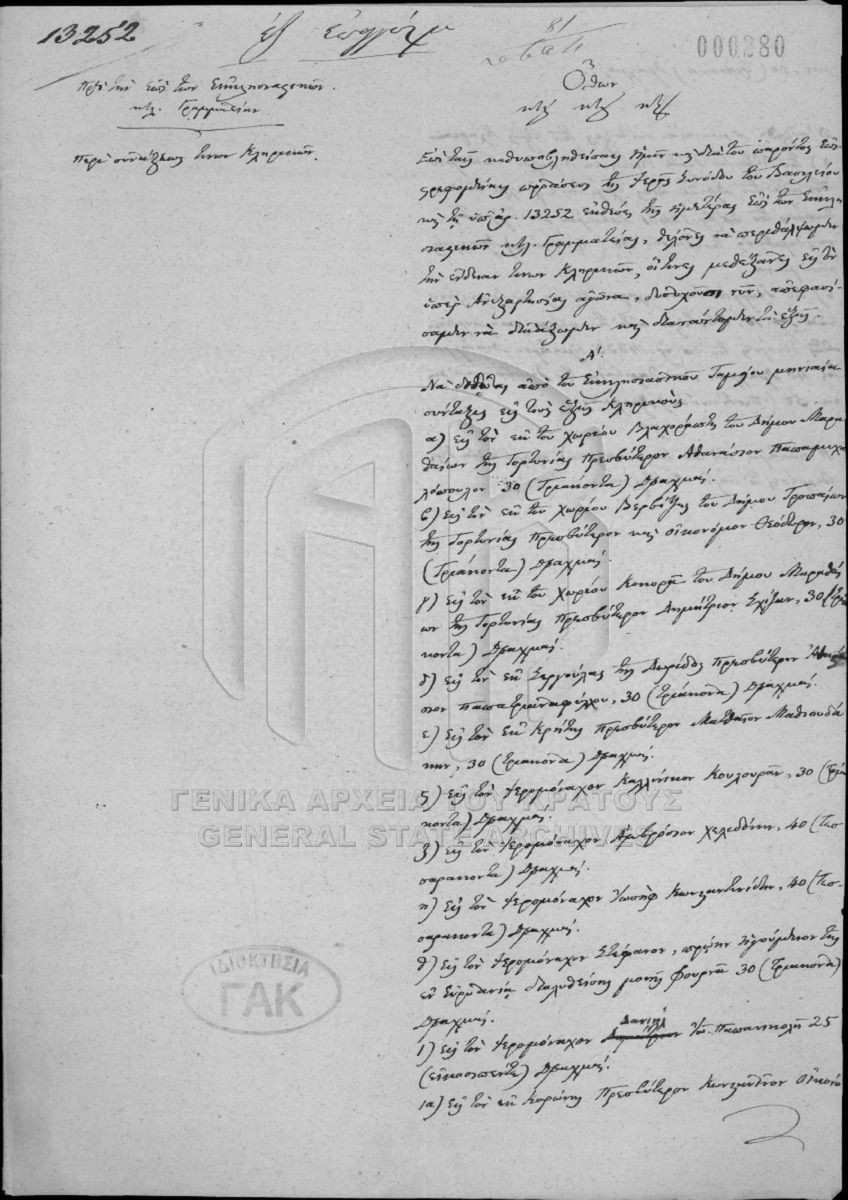 13252
000280
Πρὸς τὴν ἐπὶ τῶν Ἐκκλησιαστικῶν
κτλ. Γραμματείαν
Περὶ συντάξεως τινων Κληρικῶν.
Ὄθων
κτλ κτλ κτλ
Ἐπὶ τῆς καθυποβληθείσης ἡμῖν καὶ διὰ τοῦ παρόντος ἐπι
στρεφομένης προτάσεως τῆς Ἱερᾶς Συνόδου τοῦ Βασιλείου
καὶ τῆς ὑπ' ἀρ. 13252 ἐκθέσεως τῆς ἡμετέρας ἐπὶ τῶν Ἐκκλη
σιαστικῶν κτλ. Γραμματείας, θέλοντες νὰ περιθάλψωμεν
τὴν ἔνδειαν τινων Κληρικῶν, οἵτινες μεθέξαντες εἰς τὸν
ὑπὲρ Ἀνεξαρτησίας ἀγῶνα, δυστυχοῦσι νῦν, ἀπεφασί-
σαμεν νὰ διατάξωμεν καὶ διατάττομεν τὰ ἑξῆς.
Α!
Νὰ δοθῶσιν ἀπὸ τοῦ Ἐκκλησιαστικοῦ Ταμείου μηνιαῖαι
συντάξεις εἰς τοὺς ἑξῆς Κληρικούς
α) Εἰς τὸν ἐκ τοῦ χωρίου Βλαχοράπτη τοῦ Δήμου Μαρα
θαίων τῆς Γορτυνίας Πρεσβύτερον Ἀθανάσιον Παπαμιχα
λόπουλον 30 (Τριάκοντα) Δραχμάς.
β) Εἰς τὸν ἐκ τοῦ χωρίου Βερβίτζης τοῦ Δήμου Τροπαίων
τῆς Γορτυνίας Πρεσβύτερον καὶ οἰκονόμον Θεόδωρον, 30
(Τριάκοντα) Δραχμάς.
γ) Εἰς τὸν ἐκ τοῦ χωρίου τοῦ Δήμου Μαραθαί
ων τῆς Γορτυνίας Πρεσβύτερον Δημήτριον Σχίζαν, 30 (Τριά
κοντα) Δραχμάς.
δ) Εἰς τὸν ἐκ Σεργούλας τῆς Δωρίδος Πρεσβύτερον
30 (Τριάκοντα) Δραχμάς.
ε) Εἰς τὸν ἐκ Κρήτης Πρεσβύτερον Ματθαῖον Μαθιουδά
κην, 30 (Τριάκοντα) Δραχμάς.
ς) Εἰς τὸν Ἱερομόναχον Καλλίνικον Κουλουρᾶν, 30 (Τριά
κοντα) Δραχμάς.
ζ) Εἰς τὸν Ἱερομόναχον Ἀμβρόσιον Χελιδόνην, 40 (Τεσ-
σαράκοντα) Δραχμάς.
η) Εἰς τὸν Ἱερομόναχον Ἰωσὴφ Κωνσταντινίδην, 40 (Τεσ-
σαράκοντα) Δραχμάς.
θ) Εἰς τὸν Ἱερομόναχον Στέφανον, πρώην ἡγούμενον τῆς
ἐν Εὐρυτανίᾳ διαλυθείσης μονῆς Φουρνᾶ 30 (Τριάκοντα)
Δραχμάς.
ι) Εἰς τὸν Ἱερομόναχον Δανιὴλ Ἰω. Παπανικολῆ 25
(εἰκοσιπέντε) Δραχμάς.
ια) Εἰς τὸν ἐκ Κορώνης Πρεσβύτερον Κωνσταντῖνον Οἰκονό
ΓΕΝΙΚΑ ΑΡΧΕΙΑ ΤΟΥ ΚΡΑΤΟΥΣ
GENERAL STATE ARCHIVES
ΙΔΙΟΚΤΗΣΙΑ
ΓΑΚ